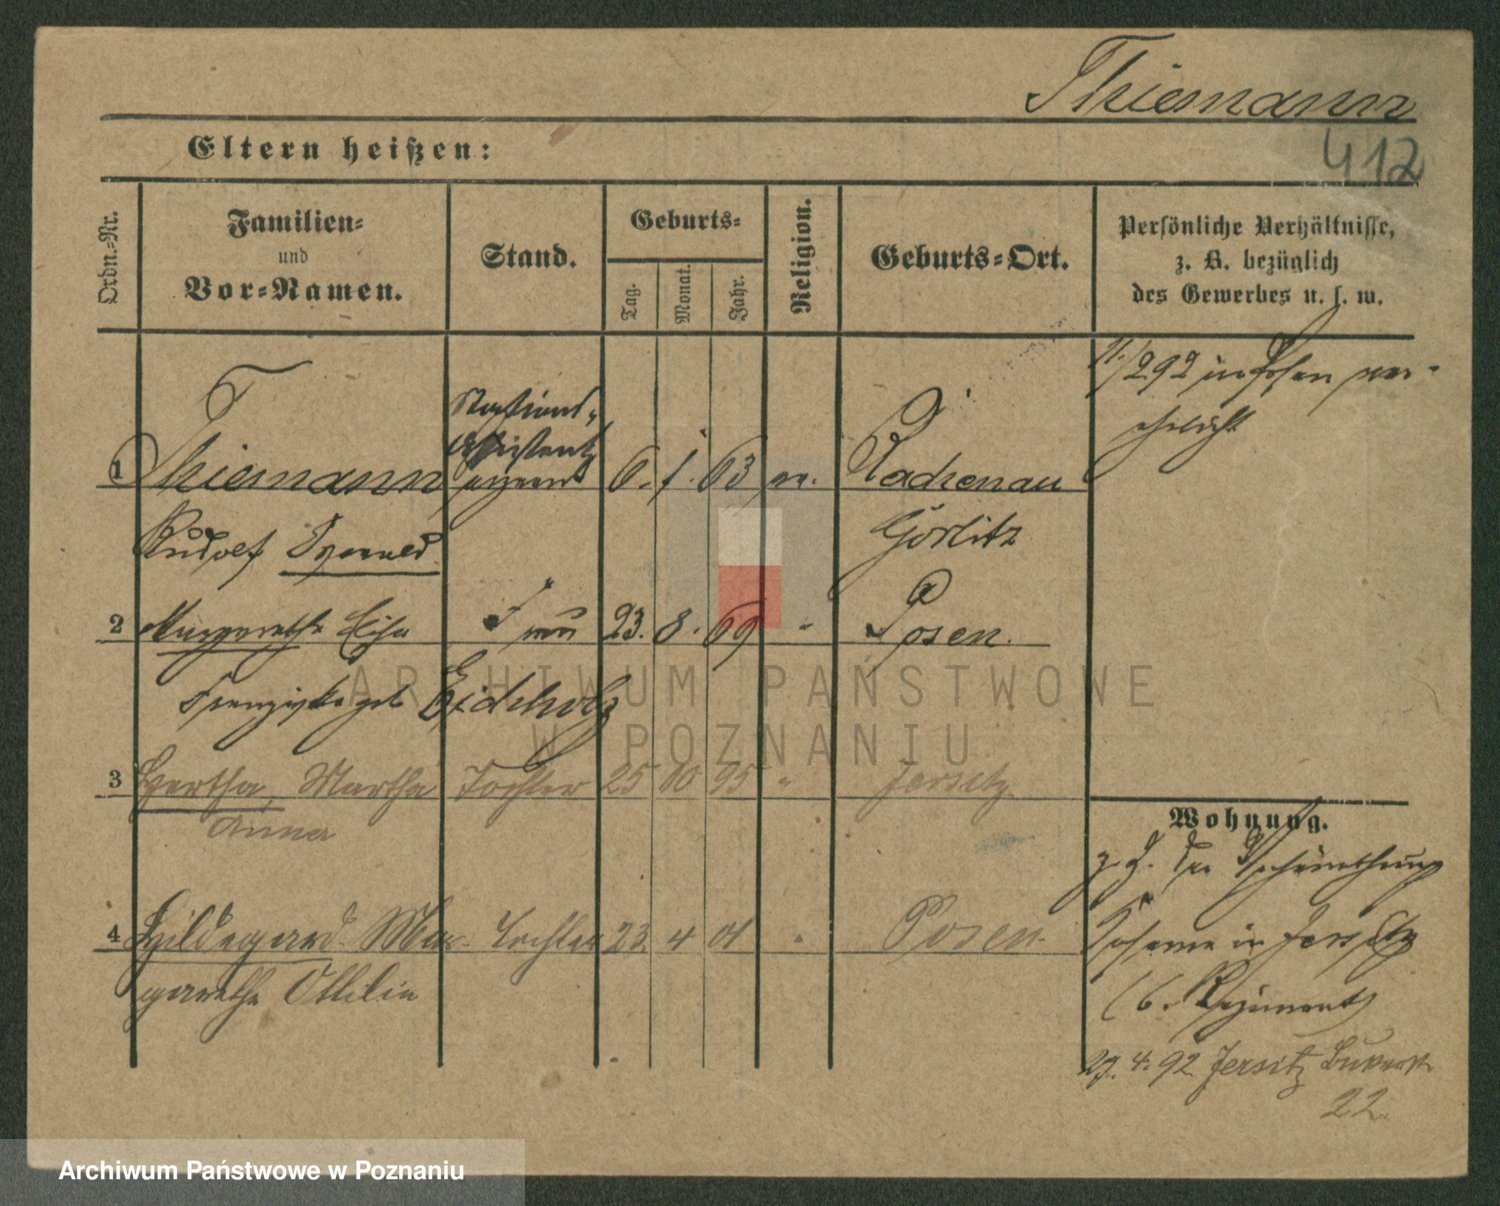 Thiemann
412
Eltern heißen:
Ordn.-Nr.
Familien-
und
Vor-Namen.
Stand.
Geburts-
Tag.
Monat.
Jahr.
Religion.
Geburts-Ort.
Persönliche Verhältnisse,
z. B. bezüglich
des Gewerbes u. s. w.
11./2 92 in Posen ver-
ehelicht
T
1 Thiemann 6. 1. 63 ev. Rachenau
Rudolf
Görlitz
2 Margarethe Elise Frau 23. 8. 69 " Posen.
Franziska geb Eichholz
3 Hertha, Martha Tochter 25 10 95 " Jersitz
Anna
4 Hildegard Mar- Tochter 23 4 01 " Posen.
garethe Ottilie
Wohnung.
z. Z. der
Kaserne in Jersitz
(6. Regiment)
27. 4. 92 Jersitz Bukerstr
22.
ARCHIWUM PAŃSTWOWE
W POZNANIU
Archiwum Państwowe w Poznaniu